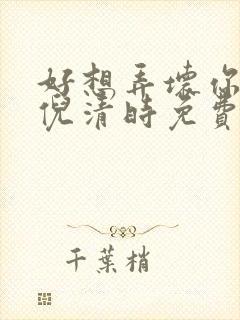 好想弄壞你
倪清時免費
千葉梢